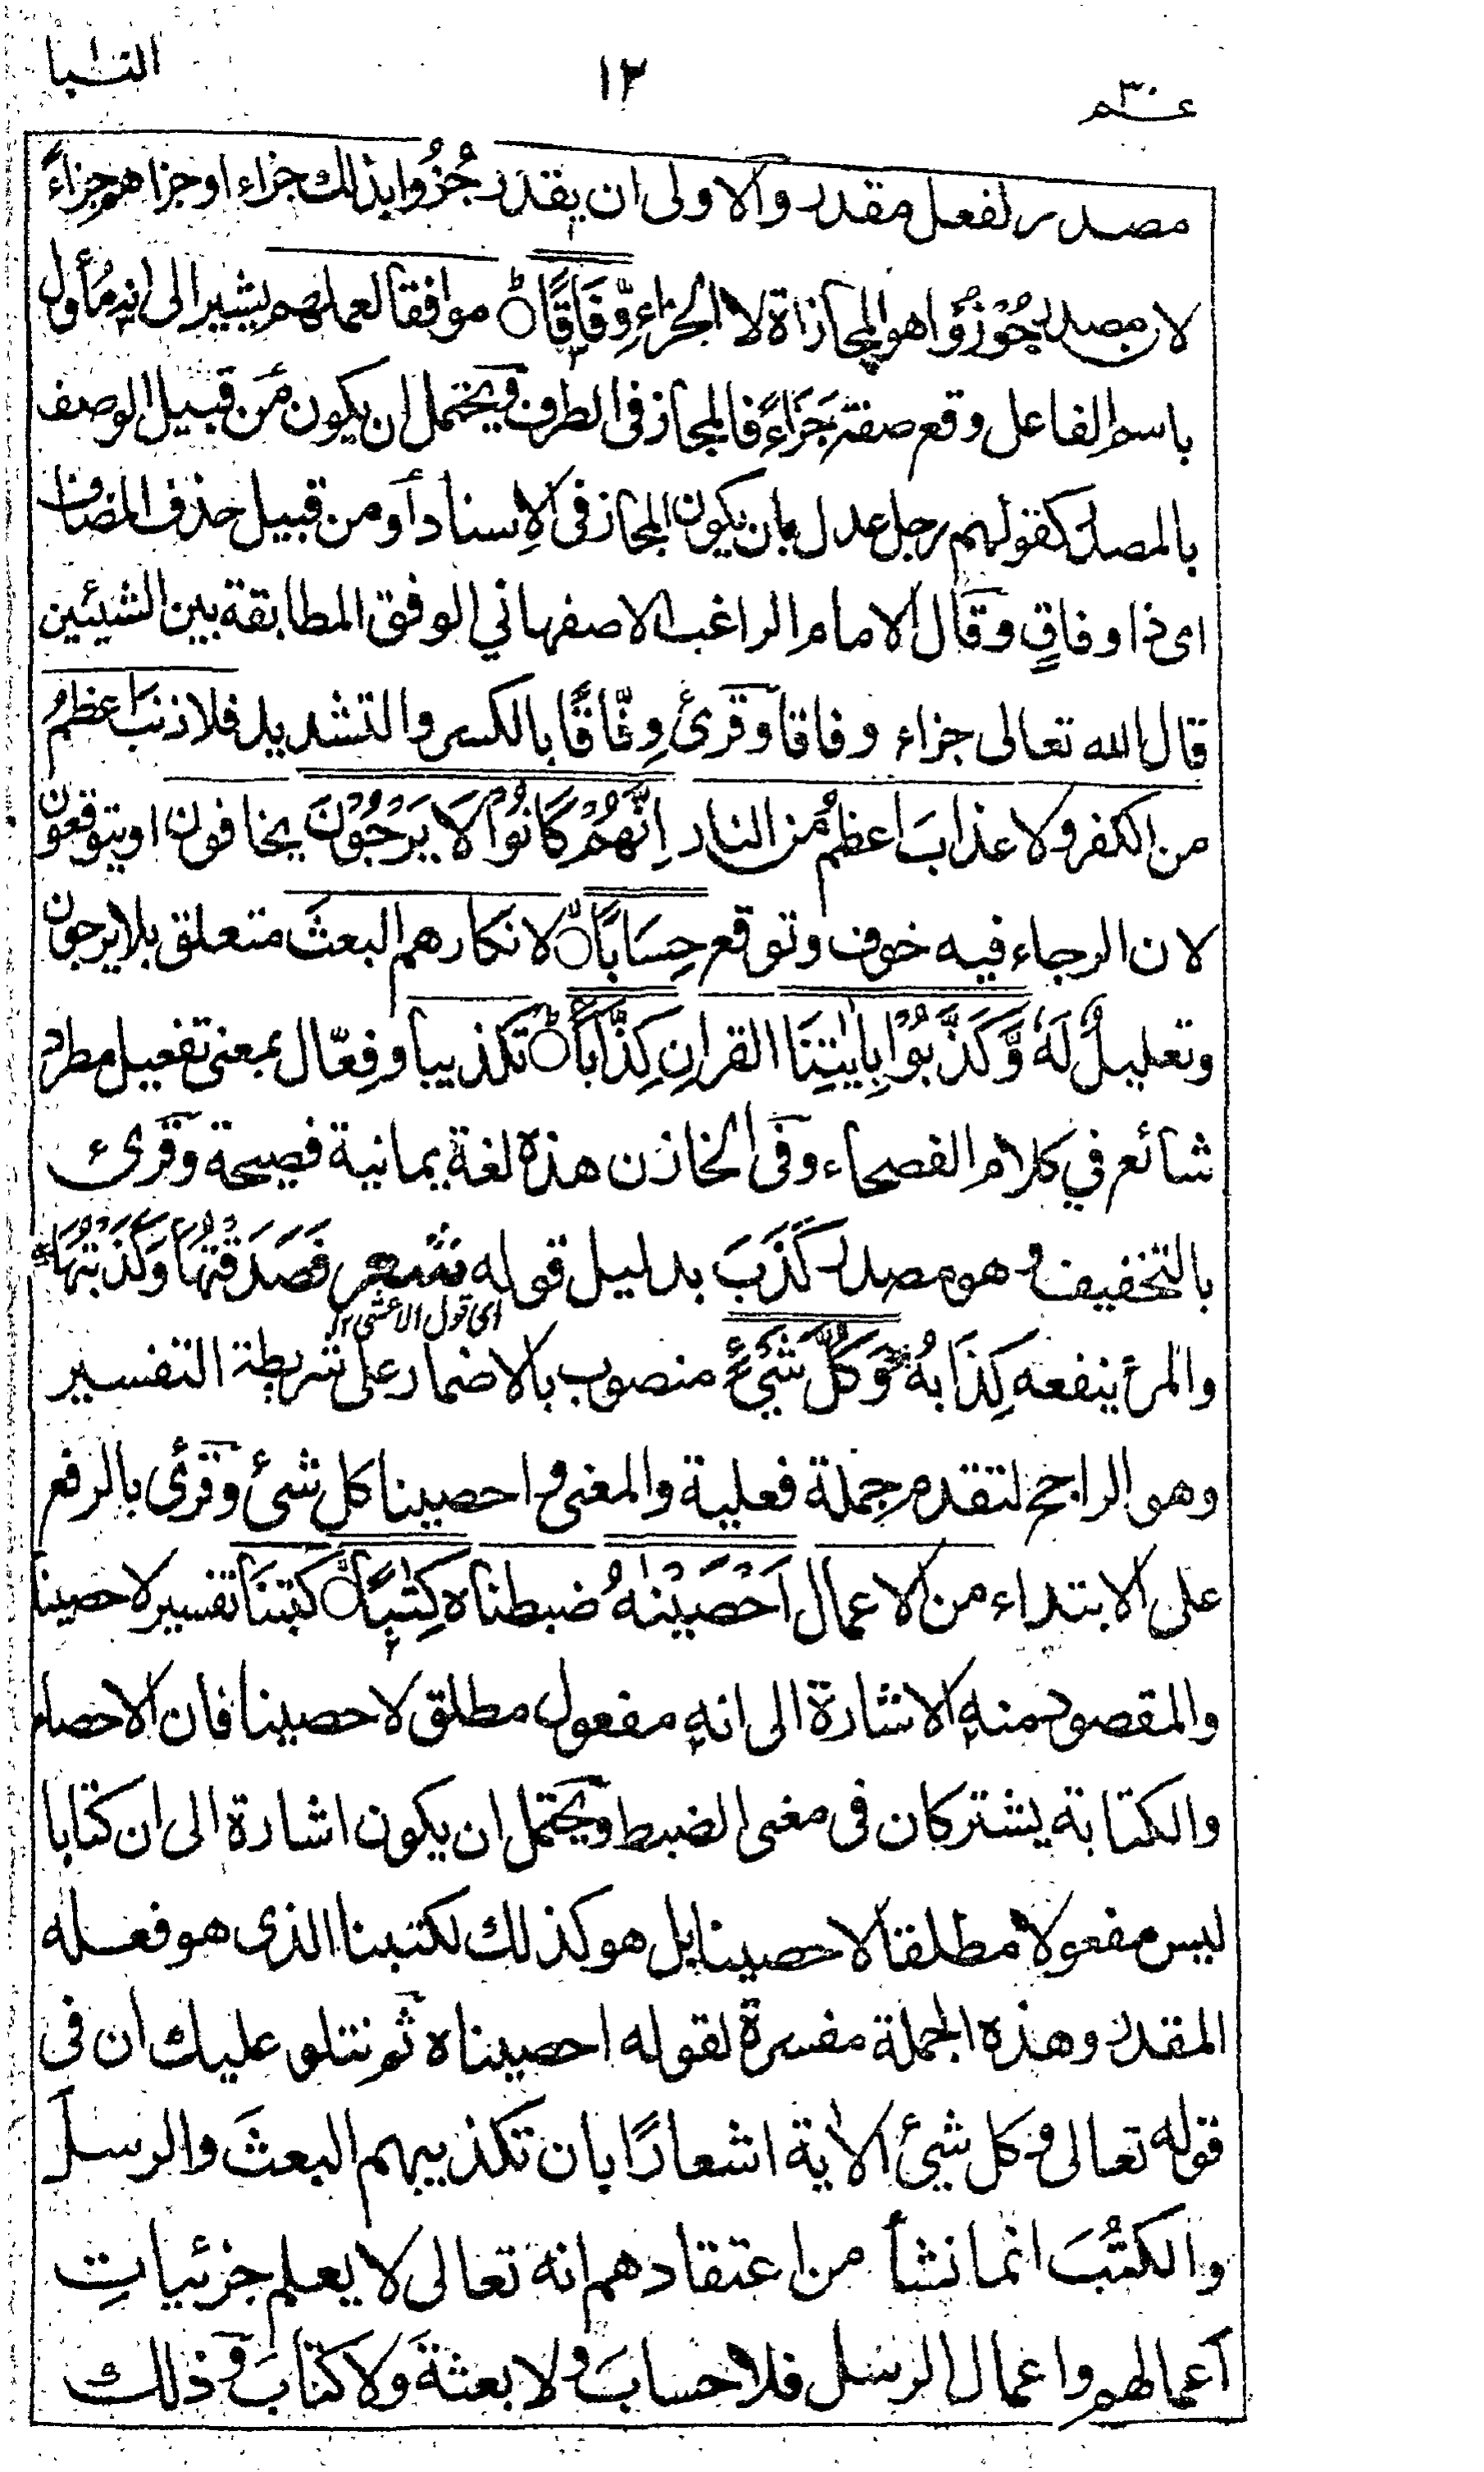 عـــم ٣٠
١٢
النـــبا
مصدر لفعل مقدر والاولى ان يقدر جُزُوا بذلك جزاء او جزاهم جزاءً
لان مصدر جُوْزُوْا هو المجازاة لا الجزاء وِّفَاقًاؕ موافقا لعملهم يشير الى انه مُأول
باسم الفاعل وقع صفة جَزَاءً فالمجاز فى الطرف ويحتمل ان يكون من قبيل الوصف
بالمصدر كقولهم رجل عدل بان يكون المجاز فى الاِسناد أو من قبيل حذف المضاف
اى ذا وفاقٍ وقال الامام الراغب الاصفهاني الوفق المطابقة بين الشيئين
قال الله تعالى جزاء وفاقا وقرئ وِفَّاقًا بالكسر والتشديد فلا ذنبَ اعظمُ
من الكفر ولا عذابَ اعظمُ من النار اِنَّهُمْ كَانُوْا لَا يَرْجُوْنَ يخافون او يتوقعون
لان الرجاء فيه خوف وتوقع حِسَابًاۙ لانكارهم البعثَ متعلق بلا يرجون
وتعليلٌ لَهٗ وَّكَذَّبُوْا بِاٰيٰتِنَا القران كِذَّابًاؕ تكذيبا وفِعّال بمعنى تفعيل مطرد
شائع في كلام الفصحاء وفى الخازن هذه لغة يمانية فصيحة وقرئ
بالتخفيف وهو مصدر كَذَبَ بدليل قوله شعر فَصَدَقْتُهَا وَكَذَبْتُهَا
اى قول الاعشى ١٢
والمرء ينفعه كِذَابُهُ وَكُلَّ شَيْءٍ منصوب بالاضمار على شريطة التفسير
وهو الراجح لتقدم جملة فعلية والمعنى واحصينا كل شئ وقرئ بالرفع
على الابتداء من الاعمال اَحْصَيْنٰهُ ضبطناه كِتٰبًاۙ كَتبْنَا تفسير لاحصينا
والمقصود منه الاشارة الى انه مفعول مطلق لاحصينا فان الاحصاء
والكتابة يشتركان فى معنى الضبط ويحتمل ان يكون اشارة الى ان كتابا
ليس مفعولا مطلقا لاحصينا بل هو كذلك لكتبنا الذى هو فعله
المقدر وهذه الجملة مفسرة لقوله احصيناه ثم نتلو عليك ان فى
قوله تعالى وكل شئ الاٰية اشعارًا بان تكذيبهم البعثَ والرسلَ
والكتُبَ انما نشأ من اعتقادهم انه تعالى لا يعلم جزئياتِ
اعمالهم واعمال الرسل فلا حسابَ ولا بعثةَ ولا كتابَ وذلك